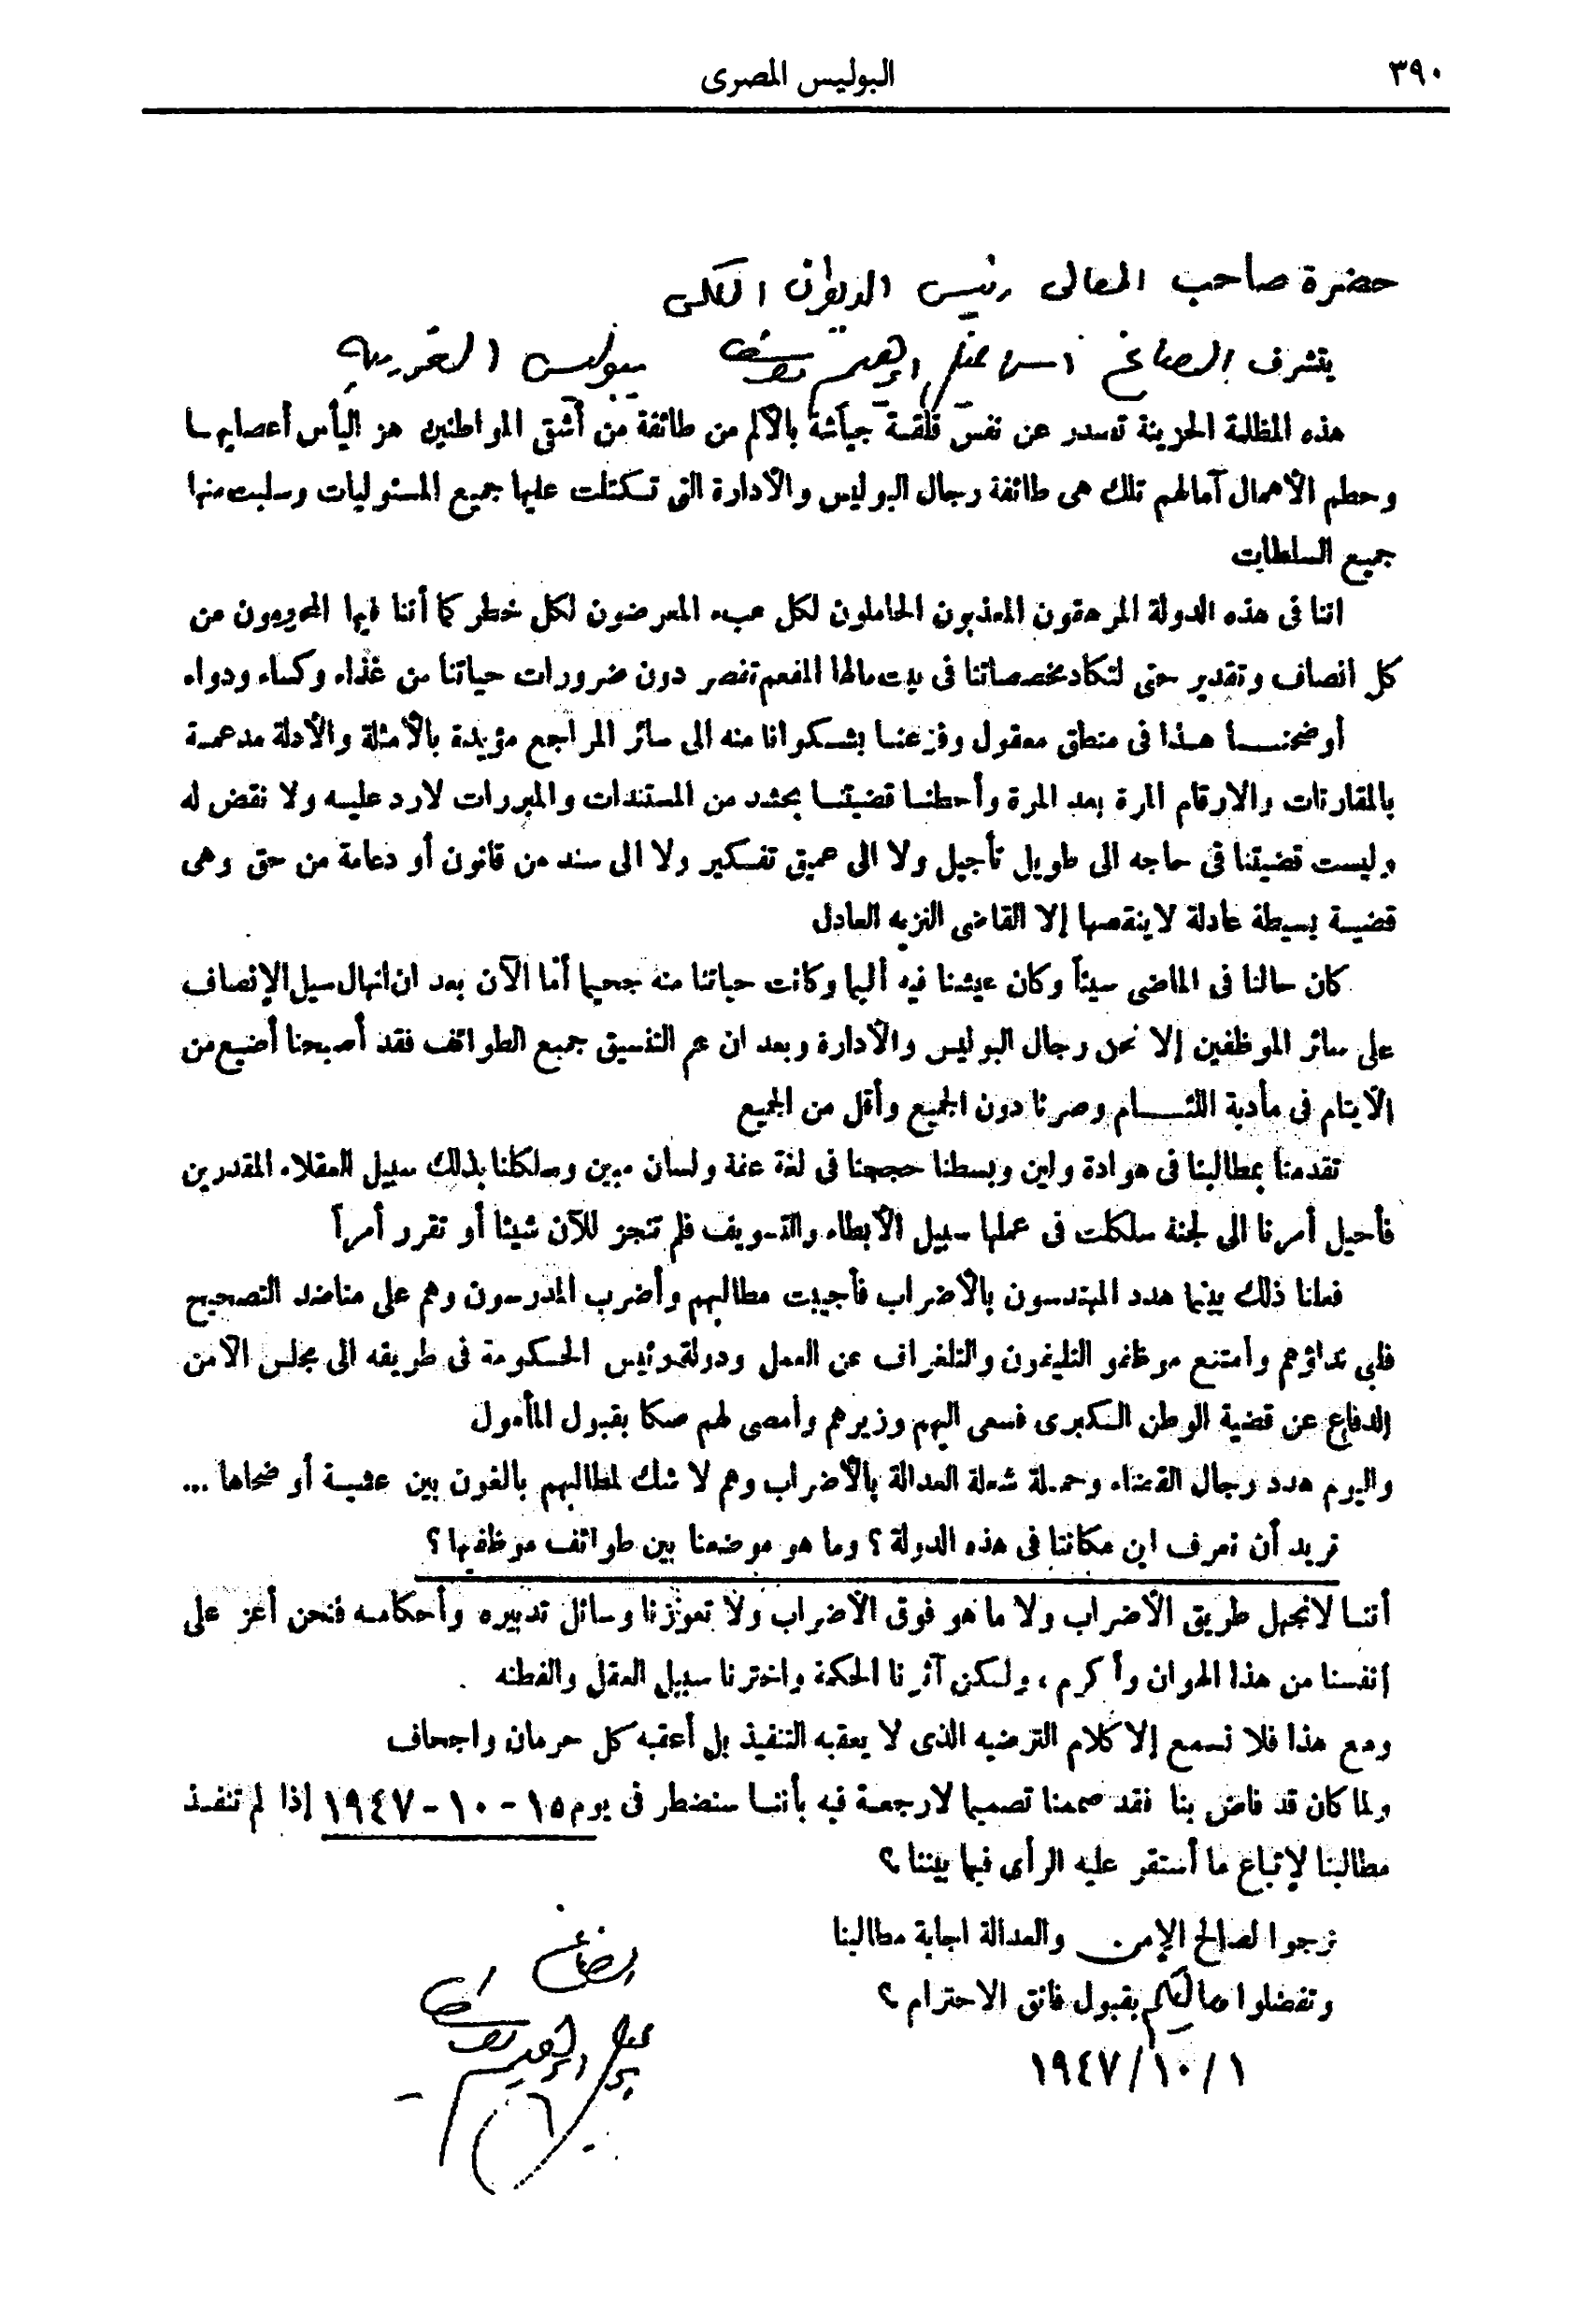 ٣٩٠
البوليس المصرى
حضرة صاحب المعالى رئيس الديوان الملكى
يتشرف الصاغ إسماعيل إبراهيم بوليس
هذه المظلمة الحزينة تصدر عن نفس قلقة جياشة بالألم من طائفة من أشق المواطنين هز اليأس أعصابها
وحطم الأهمال آمالهم تلك هى طائفة رجال البوليس والأدارة التى تكتلت عليها جميع المسئوليات وسلبت منها
جميع السلطات
اننا فى هذه الدولة المرهقون المعذبون الحاملون لكل عبء المعرضون لكل خطر كما أننا فيها المحرومون من
كل انصاف وتقدير حتى لتكاد مخصصاتنا فى بيت مالها المفعم تقصر دون ضرورات حياتنا من غذاء وكساء ودواء
أوضحنا هذا فى منطق معقول وفزعنا بشكوانا منه الى سائر المراجع مؤيدة بالأمثلة والأدلة مدعمة
بالمقارنات والارقام المرة بعد المرة وأحطنا قضيتنا بحشد من المستندات والمبررات لارد عليه ولا نقض له
وليست قضيتنا فى حاجه الى طويل تأجيل ولا الى عميق تفكير ولا الى سند من قانون أو دعامة من حق وهى
قضية بسيطة عادلة لا ينقصها إلا القاضى النزيه العادل
كان حالنا فى الماضى سيئاً وكان عيشنا فيه أليما وكانت حياتنا منه جحيما أمّا الآن بعد ان انهال سيل الإنصاف
على سائر الموظفين إلا نحن رجال البوليس والأدارة وبعد ان عم التنسيق جميع الطوائف فقد أصبحنا أضيع من
الأيتام فى مأدبة اللئام وصرنا دون الجميع وأقل من الجميع
تقدمنا بمطالبنا فى هوادة ولين وبسطنا حججنا فى لغة عفة ولسان مبين وسلكنا بذلك سبيل العقلاء المقدرين
فأحيل أمرنا الى لجنة سلكت فى عملها سبيل الأبطاء والتسويف فلم تنجز للآن شيئا أو تقرر أمراً
فعلنا ذلك بينما هدد المهندسون بالأضراب فأجيبت مطالبهم وأضرب المدرسون وهم على مناضد التصحيح
فلبى نداؤهم وأمتنع موظفو التليفون والتلغراف عن العمل ودولة رئيس الحكومة فى طريقه الى مجلس الامن
للدفاع عن قضية الوطن الكبرى فسعى اليهم وزيرهم وأمضى لهم صكا بقبول المأمول
واليوم هدد رجال القضاء وحملة شعلة العدالة بالأضراب وهم لا شك لمطالبهم بالغون بين عشية أو ضحاها ...
نريد أن نعرف اين مكاننا فى هذه الدولة ؟ وما هو موضعنا بين طوائف موظفيها ؟
أننا لا نجهل طريق الأضراب ولا ما هو فوق الأضراب ولا تعوزنا وسائل تدبيره وأحكامه فنحن أعز على
أنفسنا من هذا الهوان وأكرم ، ولكن آثرنا الحكمة واخترنا سبيل العقل والفطنه .
ومع هذا فلا نسمع إلا كلام الترضيه الذى لا يعقبه التنفيذ بل أعقبه كل حرمان واجحاف
ولما كان قد فاض بنا فقد صممنا تصميما لا رجعة فيه بأننا سنضطر فى يوم ١٥ - ١٠ - ١٩٤٧ إذا لم تنفذ
مطالبنا لإتباع ما أستقر عليه الرأى فيما بيننا ؟
نرجوا لصالح الإمن والعدالة اجابة مطالبنا
وتفضلوا معاليكم بقبول فائق الاحترام ؟
١ / ١٠ / ١٩٤٧